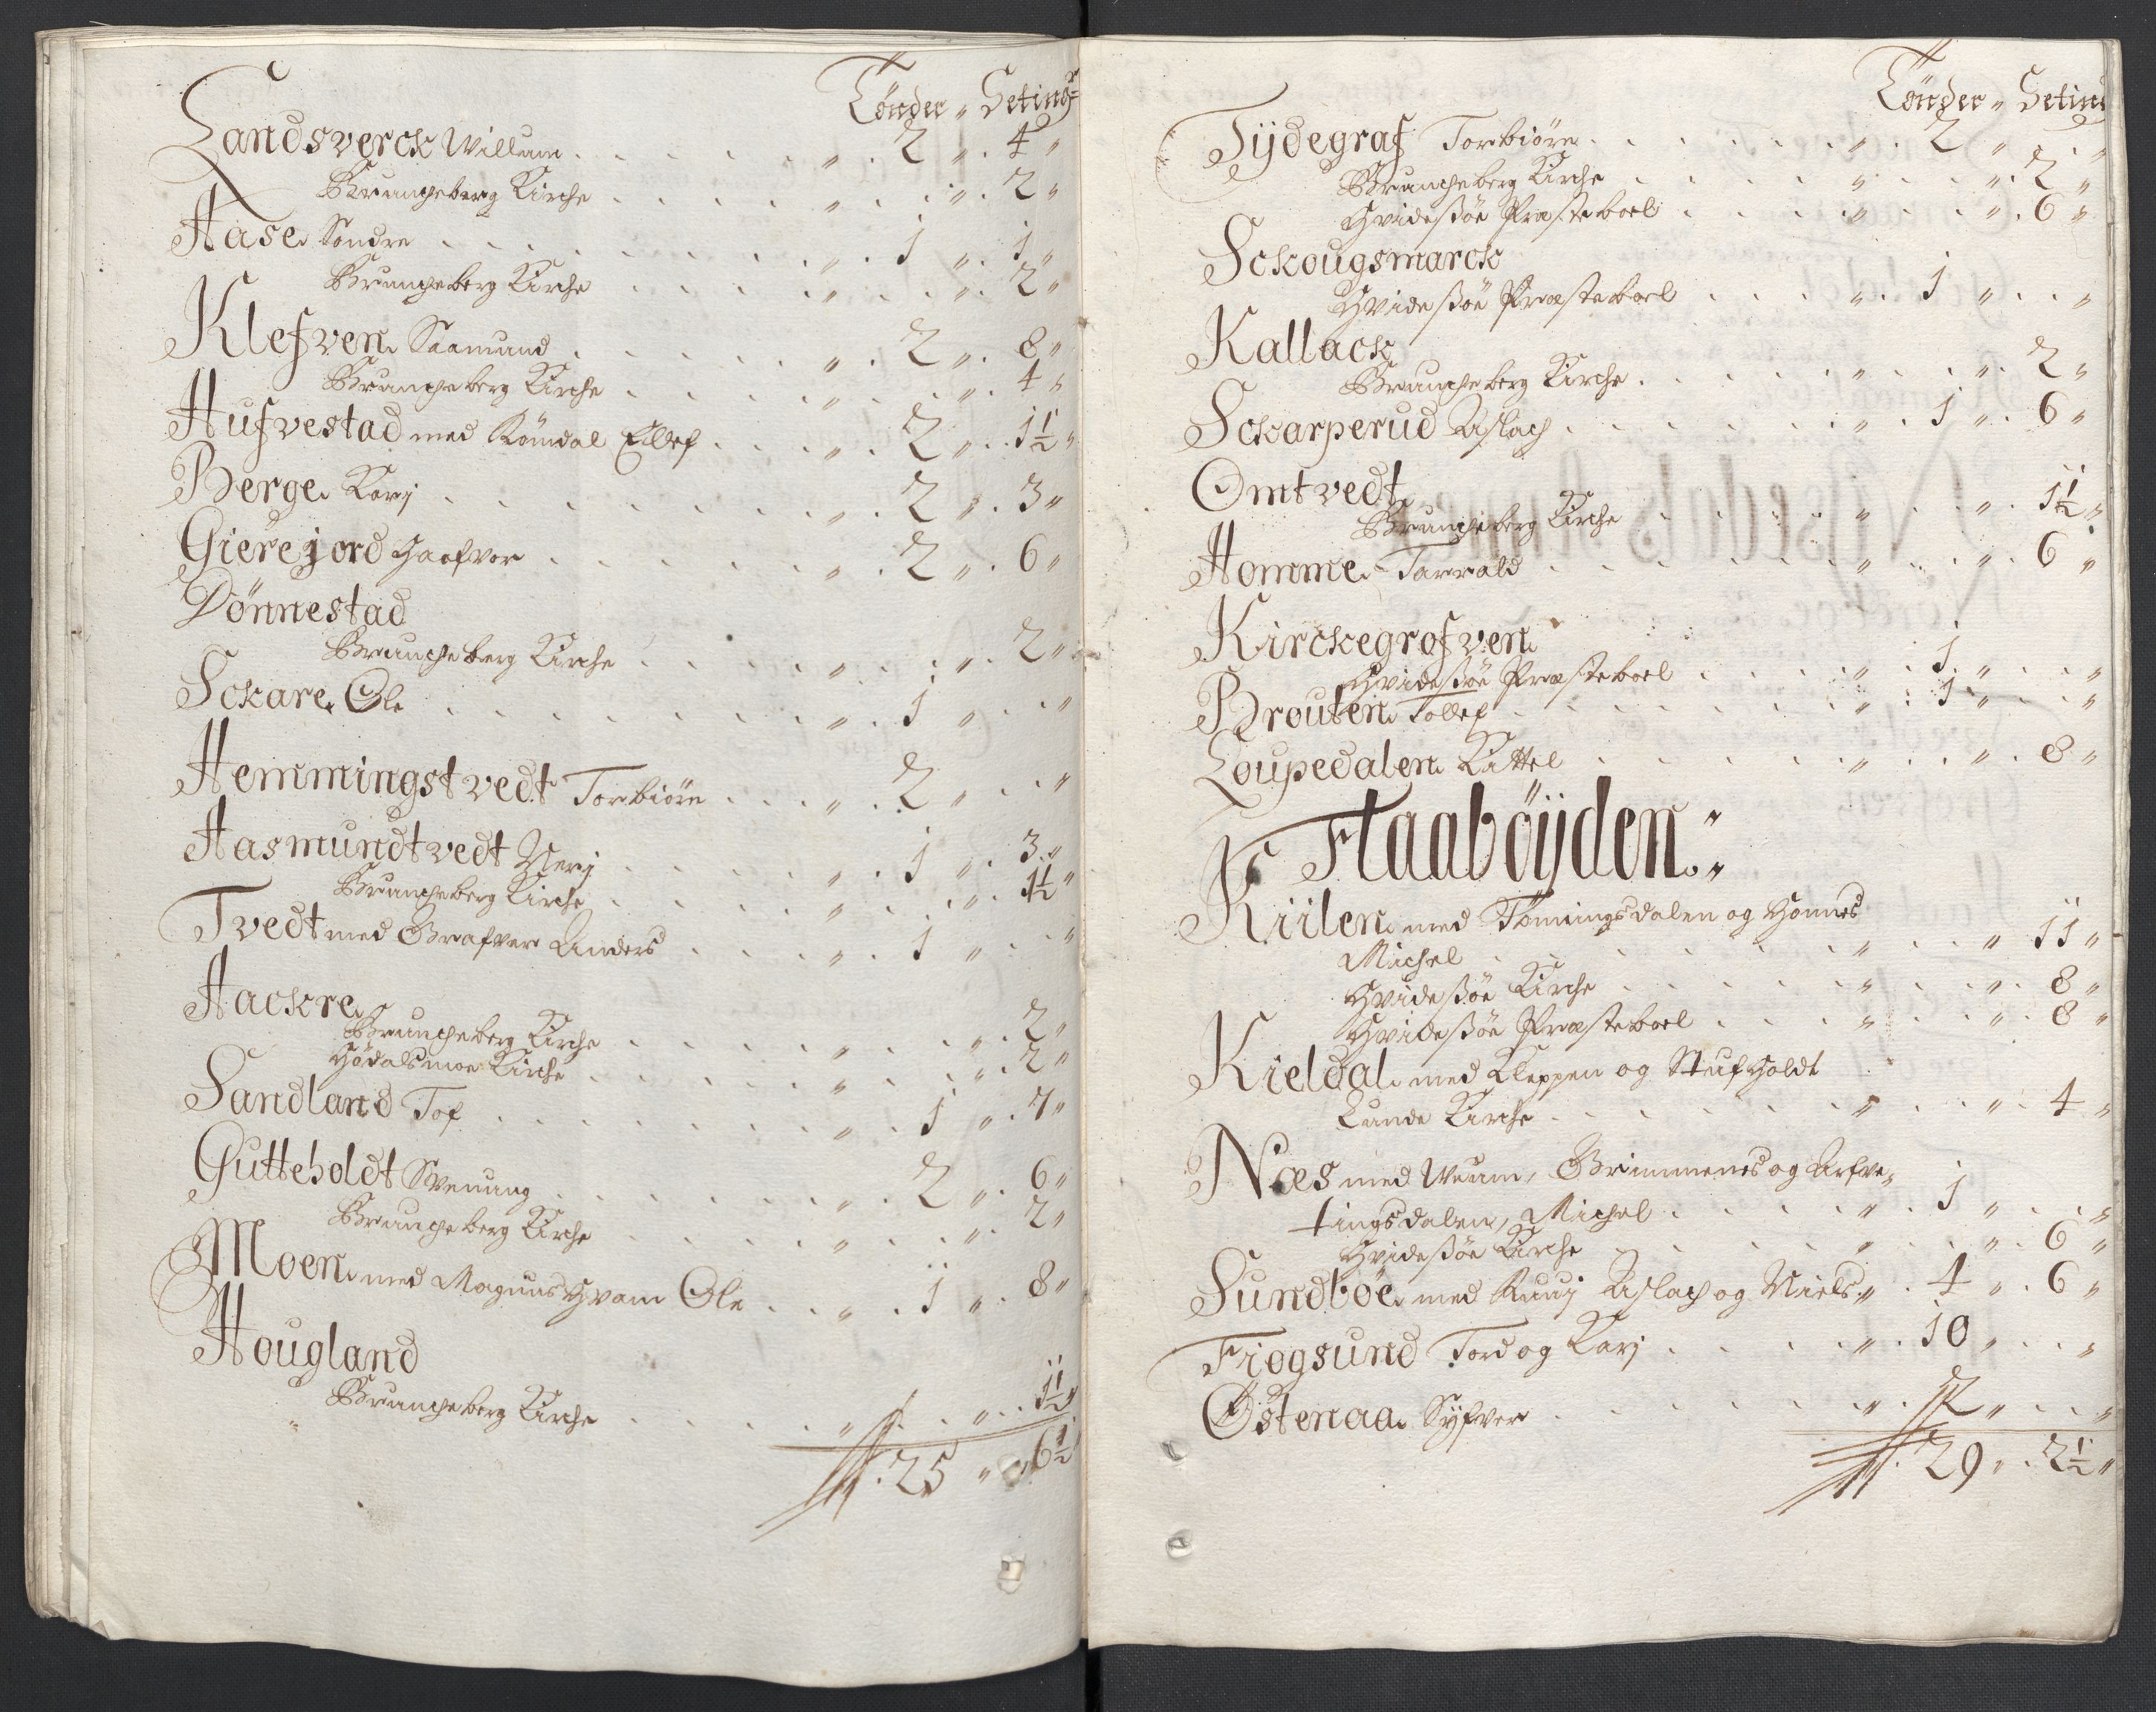 Tönder " Seting
Landsverck Willum . . . . . . " . 2 " . 4 "
Brungeberg Kirche . . . . . " . . " . 2 "
Aase Söndre . . . . . . " . 1 " . 1 "
Brungeberg Kirche . . . . " . . " . 2 "
Klefven Saamund . . . . . " . 2 " . 8 "
Brungeberg Kirche . . . . " . . " . 4 "
Hufvestad med Römdal Ellef . . . " . 2 " . 1½ "
Berge Karj . . . . . . . " . 2 " . 3 "
Gierejord Haafvor . . . . . " . 2 " . 6 "
Dönnestad
Brungeberg Kirche . . . . " . . " . 2 "
Sckare Ole . . . . . . . " . 1 " . . "
Hemmingstvedt Torbiörn . . . " . 2 " . . "
Aasmundtvedt Nerj . . . . " . 1 " . 3 "
Brungeberg Kirche . . . . " . . " . 1½ "
Tvedt med Grafver Anders . . . " . 1 " . . "
Aackre
Brungeberg Kirche . . . . " . . " . 2 "
Hödalsmoe Kirche . . . . " . . " . 2 "
Sandland Tof . . . . . . " . 1 " . 7 "
Gutteholdt Svenung . . . . . " . 2 " . 6 "
Brungeberg Kirche . . . . " . . " . 2 "
Moen med Magnus Hvam Ole . . " . 1 " . 8 "
Hougland
Brungeberg Kirche . . . . " . . " . 1½ "
25 " 6½
Tönder " Seting
Tijdegraf Torbiörn . . . . . " . 2 " . . "
Brungeberg Kirche . . . . " . . " . 2 "
Hvidesßöe Præsteboel . . . " . . " . 6 "
Sckougsmarck
Hvidesßöe Præsteboel . . . . " . 1 " . . "
Kallack
Brungeberg Kirche . . . . " . . " . 2 "
Sckarperud Aslach . . . . . " . 1 " . 6 "
Omtvedt
Brungeberg Kirche . . . . " . . " . 1½ "
Homme Tarvald . . . . . " . . " . 6 "
Kirckegrofven
Hvidesßöe Præsteboel . . . . " . 1 " . . "
Brouten Tollef . . . . . . " . 1 " . . "
Loupedalen Kittel . . . . . " . . " . 8 "
Flaaböijden :
Kiilen med Tömmingsdalen og Honnes
Michel . . . . . . " . . " 11 "
Hvidesßöe Kirche . . . . . " . . " . 8 "
Hvidesßöe Præsteboel . . . " . . " . 8 "
Kieldal med Kleppen og Stufholdt
Lunde Kirche . . . . . . " . . " . 4 "
Næs med Wuum, Grimmenes og Arfve,
tingsdalen, Michel . . . . " . 1 " . . "
Hvidesßöe Kirche . . . . . " . . " . 6 "
Sundböe med Ruuj Aslach og Niels " . 4 " . 6 "
Fiøgsund Tord og Karj . . . . " . 10 " . . "
Östenaa Syfver . . . . . . " . 2 " . . "
29 " . 2½ "